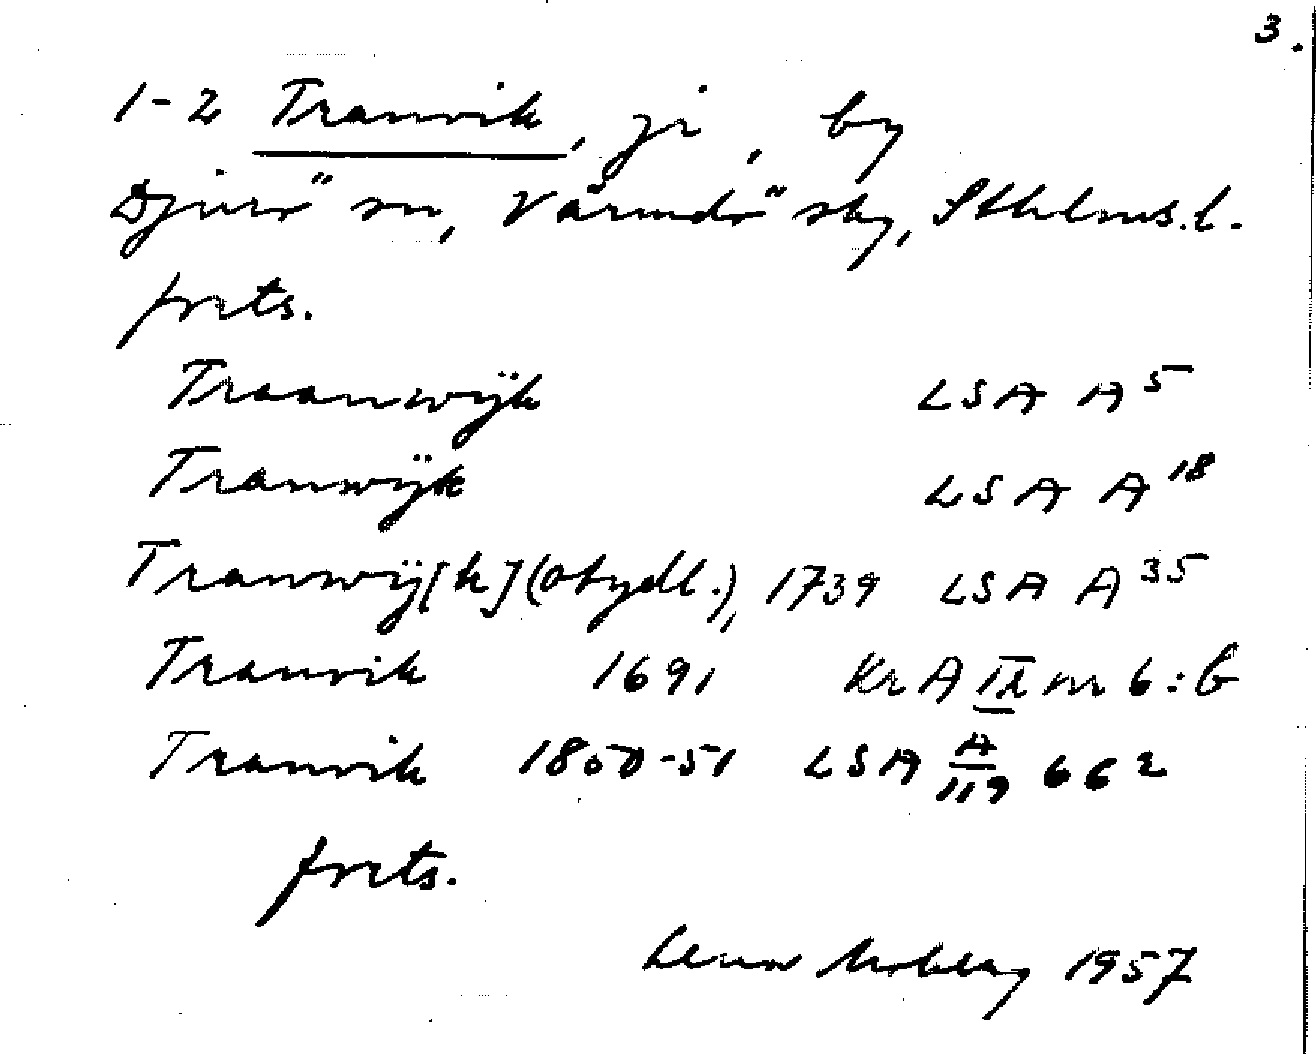 3.
1-2 Tranvik, ji, by
Djurö sn, Värmdö sky, Sthlms.l.
forts.
Traanwÿk LSA A5
Tranwÿk LSA A18
Tranwÿ[k] (otydl.), 1739 LSA A35
Tranvik 1691 KrA IX nr 6:b
Tranvik 1850-51 LSA A/119 662
forts.
Lena Moberg 1957